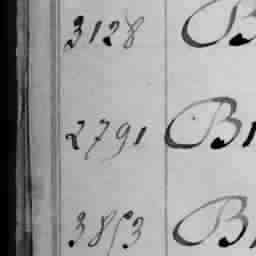 3128 B
2791 Br
3853 Br